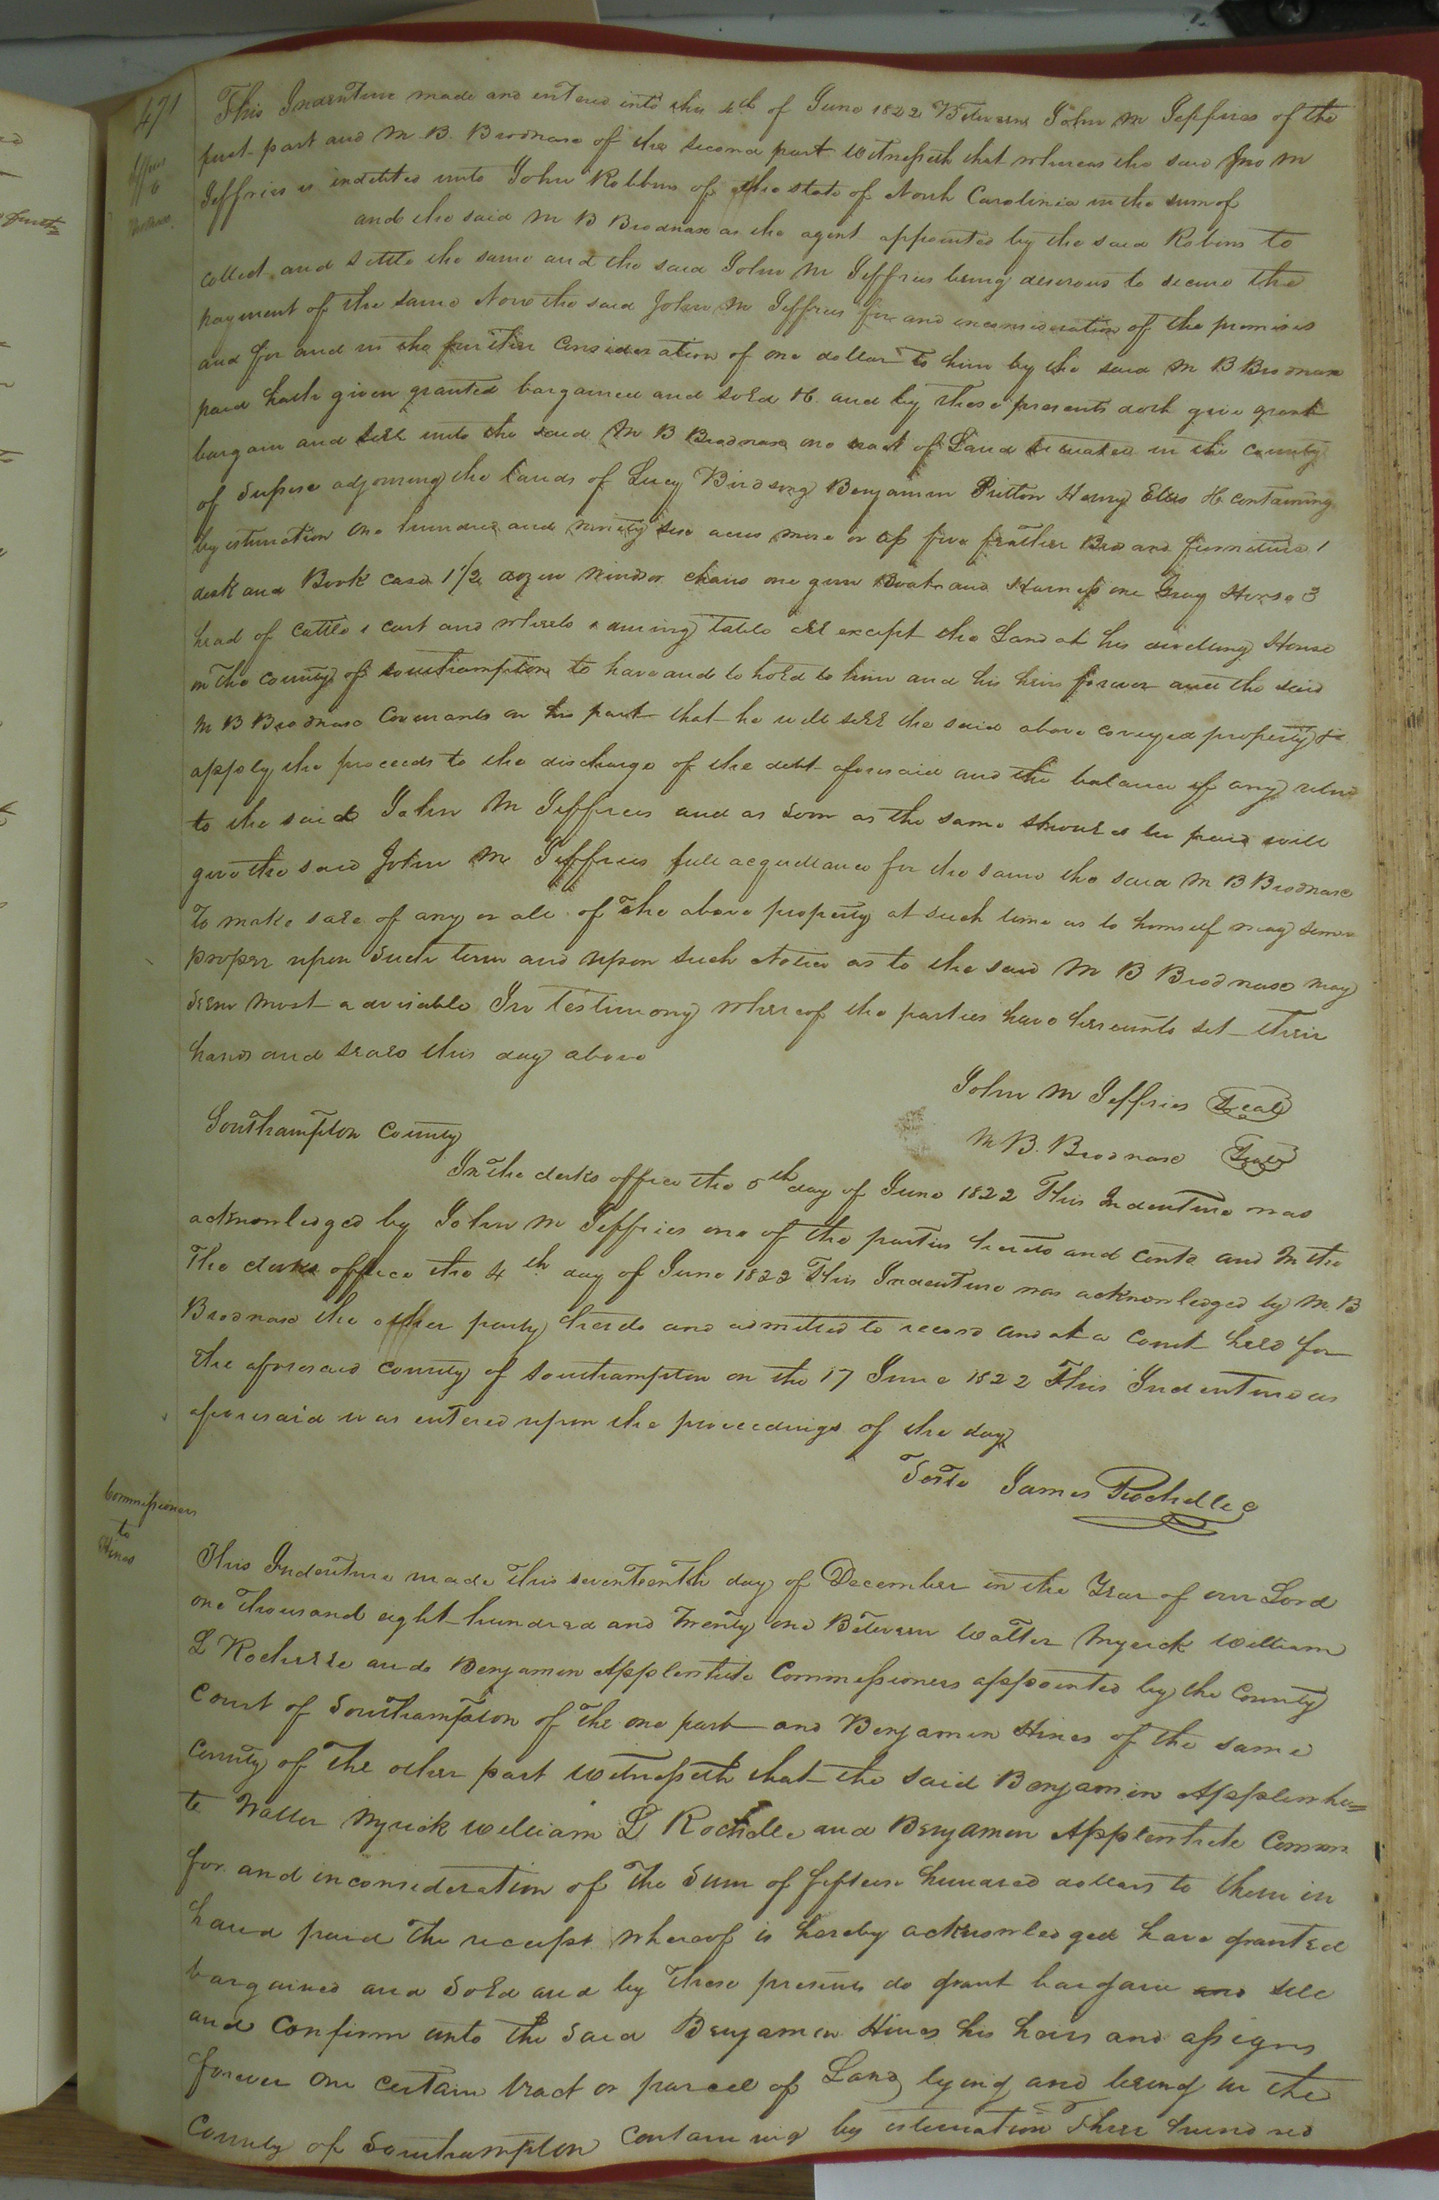 471
This Indenture made and entered into the 4th of June 1822 Between John M Jeffries of the
first part and M. B. Brodnax of the second part Witnesseth that whereas the said Jno M
Jeffries is indebted unto John Robbins of the state of North Carolinia in the sum of
and the said M B Brodnax as the agent appointed by the said Robins to
collect and settle the same and the said John M Jeffries being desirous to secure the
payment of the same Now the said John M Jeffries for and in consideration of the premises
and for and in the further consideration of one dollar to him by the said M B Brodnax
paid hath given granted bargained and sold &c. and by these presents doth give grant
bargain and sell unto the said M B Brodnax one tract of Land situated in the county
of Sussex adjoining the lands of Lucy Birdsong Benjamin Henry Ellis &c containing
by estimation one hundred and ninety six acres more or less five feather Beds and furniture 1
desk and Book case 1 1/2 dozen windsor chairs one and Harness one Gray Horse 3
head of cattle 1 cart and wheels 1 dining table all except the Land at his dwelling House
in the county of southampton to have and to hold to him and his heirs forever and the said
M B Brodnax covenants on his part that he will sell the said above conveyed property &
apply the proceeds to the discharge of the debt aforesaid and the balance if any
to the said John M Jeffries and as soon as the same should be paid will
give the said John M Jeffries full acquittance for the same the said M B Brodnax
To make sale of any or all of the above property at such time as to himself may seem
proper upon such term and upon such Notice as to the said M B Brodnax may
seem most advisable In Testimony whereof the parties have hereunto set their
hands and seals this day above
John M Jeffries Seal
M B. Brodnax Seal
Southampton County
In the clerks office the 5th day of June 1822 This Indenture was
acknowledged by John M Jeffries one of the parties hereto and and In the
The clerks office the 4th day of June 1822 This Indenture was acknowledged by M. B
Brodnax the other party hereto and admitted to record and at a Court held for
the aforesaid county of southampton on the 17 June 1822 This Indenture as
aforesaid was entered upon the proceedings of the day
Teste James Rochelle C
Commissioners
to
Hines
This Indenture made this seventeenth day of December in the Year of our Lord
one thousand eight hundred and Twenty one Between Walter Myrick William
L Rochelle and Benjamin Applewhite Commissioners appointed by the County
Court of Southampton of the one part and Benjamin Hines of the same
County of the other part Witnesseth that the said Benjamin Applewhi=
te Walter Myrick William L Rochelle and Benjamin Applewhite Commrs
for and in consideration of the Sum of fifteen hundred dollars to them in
hand paid the receipt whereof is hereby acknowledged have granted
bargained and sold and by these presents do grant bargain and sell
and confirm unto the said Benjamin Hines his heirs and assigns
forever one certain tract or parcel of Land lying and being in the
County of Southampton containing by estimation Three hundred